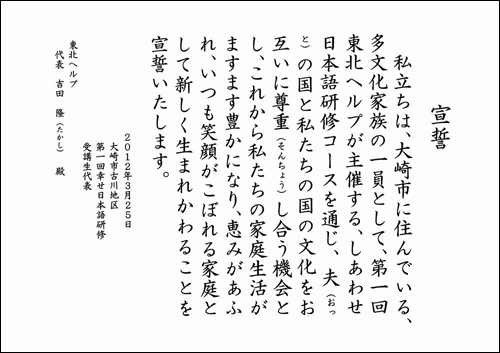 宣誓
私立ちは、大崎市に住んでいる、
多文化家族の一員として、第一回
東北ヘルプが主催する、しあわせ
日本語研修コースを通じ、夫（おっ
と）の国と私たちの国の文化をお
互いに尊重（そんちょう）し合う機会と
し、これから私たちの家庭生活が
ますます豊かになり、恵みがあふ
れ、いつも笑顔がこぼれる家庭と
して新しく生まれかわることを
宣誓いたします。
２０１２年３月２５日
大崎市古川地区
第一回幸せ日本語研修
受講生代表
東北ヘルプ
代表　吉田　隆（たかし）　殿